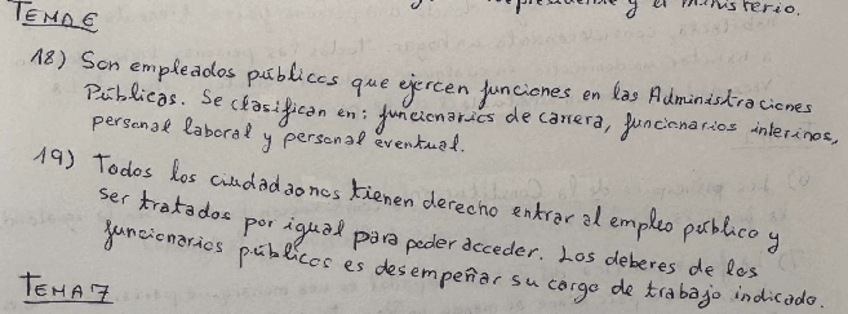 y el ministerio.
TEMA 6
18) Son empleados públicos que ejercen funciones en las Administraciones
Públicas. Se clasifican en: funcionarios de carrera, funcionarios interinos,
personal laboral y personal eventual.
19) Todos los ciudadaonos tienen derecho entrar al empleo público y
ser tratados por igual para poder acceder. Los deberes de los
funcionarios públicos es desempeñar su cargo de trabajo indicado.
TEMA 7